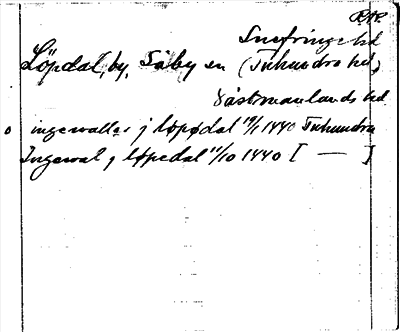 RAP.
Snefringe hd
Löpdal, by, Säby sn (Tuhundra hd)
Västmanlands hd
o ingewaller j løpødal 1440 Tuhundra
Ingewal j løpedal 11/10 1440 [ — ]